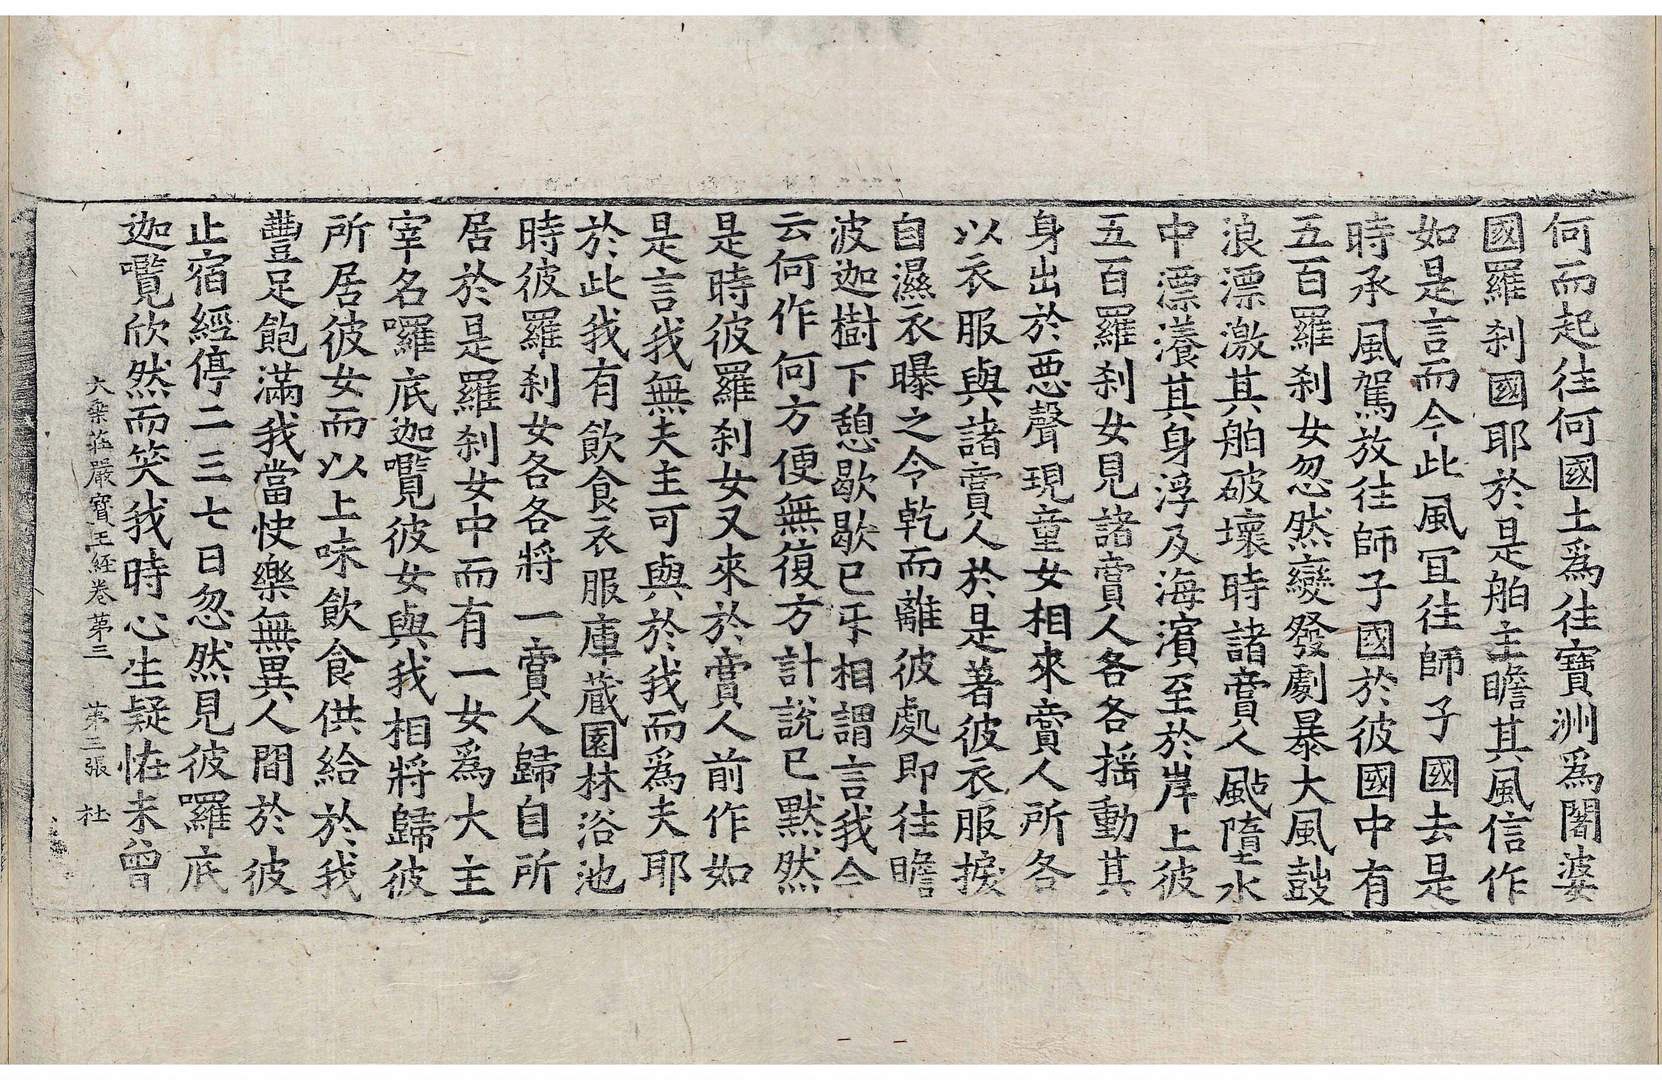 何而起往何國土爲往寶洲爲闍婆
國羅刹國耶於是舶主瞻其風信作
如是言而今此風冝往師子國去是
時承風駕放往師子國於彼國中有
五百羅刹女忽然變發劇暴大風鼓
浪漂激其舶破壞時諸啇人颭墮水
中漂瀁其身浮及海濱至於岸上彼
五百羅刹女見諸啇人各各揺動其
身出於惡聲現童女相來啇人所各
以衣服與諸啇人於是著彼衣服捩
自濕衣曝之令乾而離彼處即往瞻
波迦樹下憩歇歇已㸦相謂言我今
云何作何方便無復方計說已默然
是時彼羅刹女又來於啇人前作如
是言我無夫主可與於我而爲夫耶
於此我有飮食衣服庫藏園林浴池
時彼羅刹女各各將一啇人歸自所
居於是羅刹女中而有一女爲大主
宰名囉底迦囕彼女與我相將歸彼
所居彼女而以上味飮食供給於我
豐足飽滿我當快樂無異人間於彼
止宿經停二三七日忽然見彼囉底
迦囕欣然而笑我時心生疑恠未曾
大乗莊嚴寶王經卷第三　第三張　杜